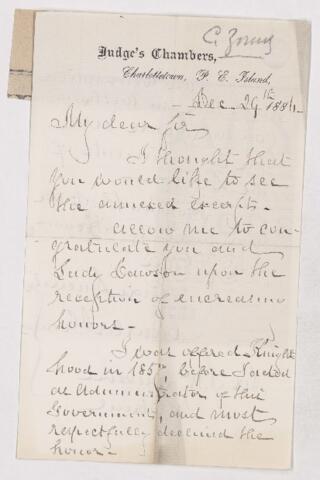 C. Young
Judge's Chambers,
Charlottetown, P. E. Island,
Dec 29th 1884.
My dear Sir
I thought that
you would like to see
the annexed excerpts.
allow me to con-
gratulate you and
Lady Dawson upon the
reception of increasing
honors -
I was offered Knight
hood in 185 , before I acted
as Administrator of this
Government, and most
respectfully declined the
honor -